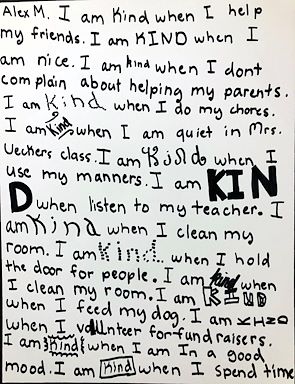 Alex M. I am Kind when I help
my friends. I am KIND when I
am nice. I am kind when I dont
complain about helping my parents.
I am Kind when I do my chores.
I am Kind when I am quiet in Mrs.
Ueckers class. I am Kind when I
use my manners. I am KIN
D when listen to my teacher. I
am Kind when I clean my
room. I am Kind when I hold
the door for people. I am kind when
I clean my room. I am KIND
when I feed my dog. I am KIND
when I vallunteer for fund raisers.
I am Kind when I am In a good
mood. I am Kind when I spend time